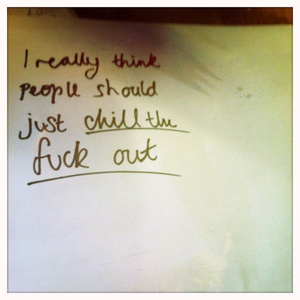 I really think
people should
just chill the
fuck out